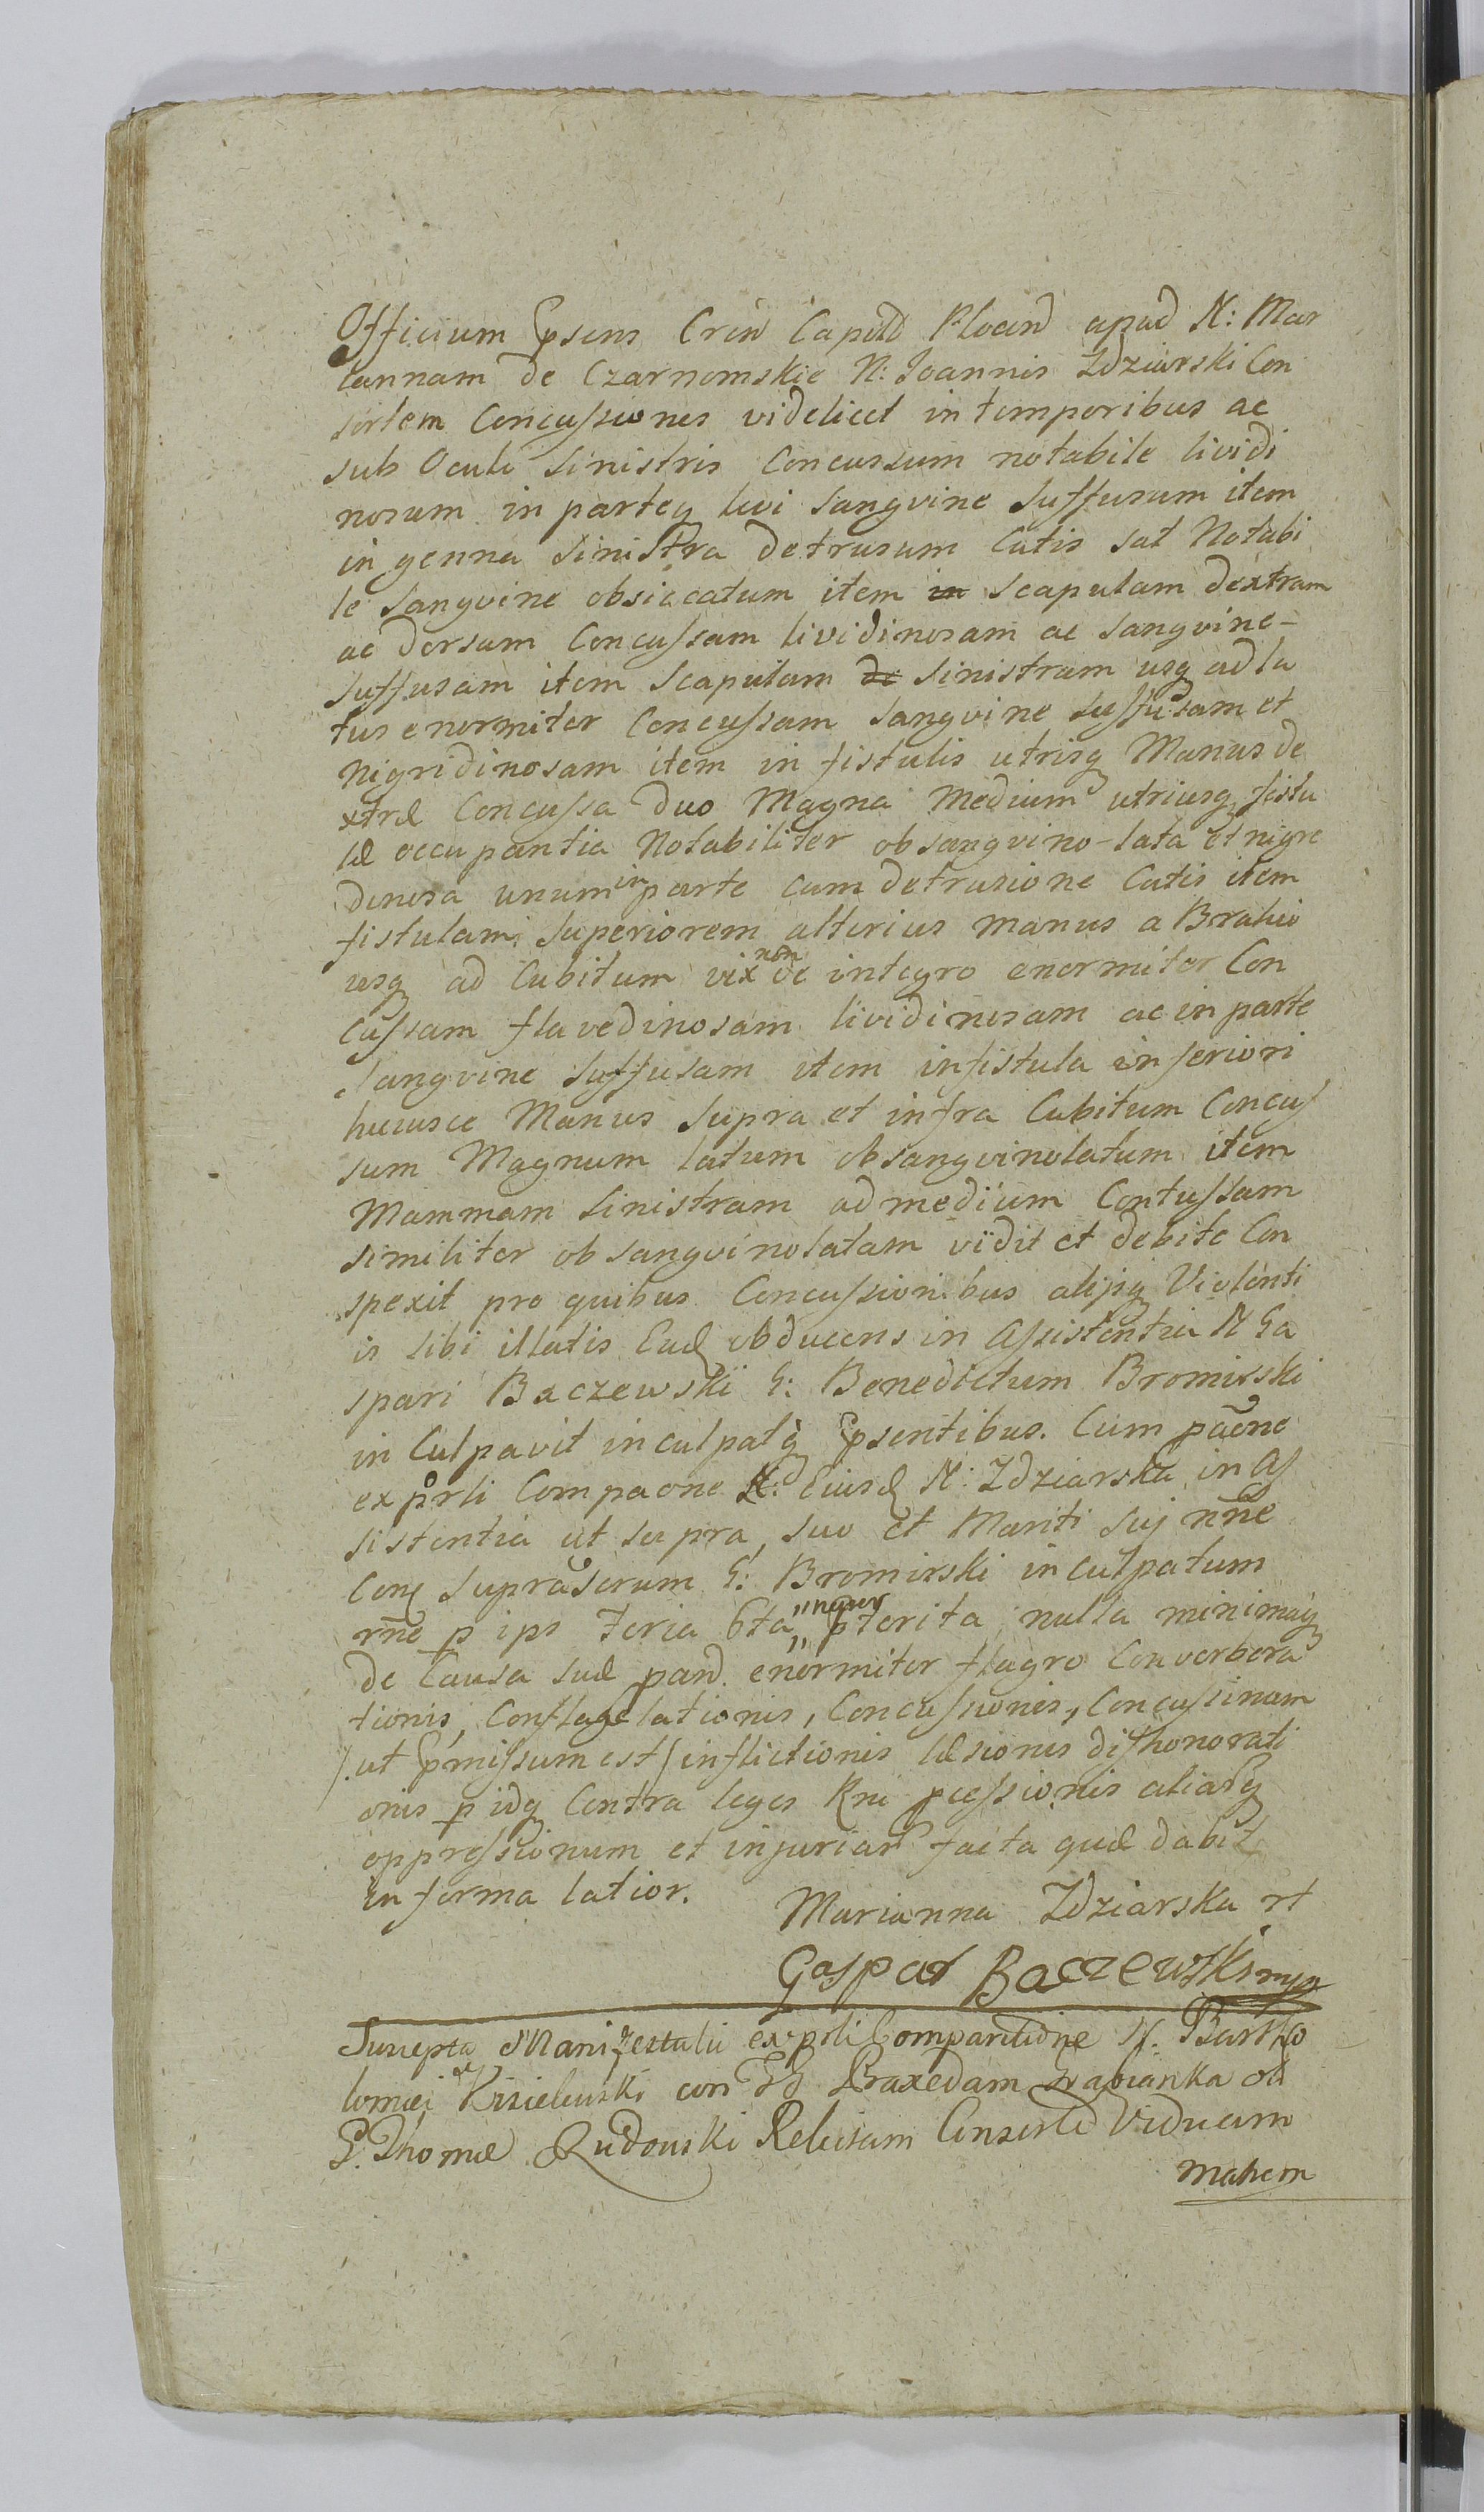 Officium Psens Cren Capitd Plocend apud N: Mar
iannam de Czarnomskie N: Joannis Zdziarski Con
sortem Concussiones videlicet in temporibus ac
sub Oculi sinistris Concussum notabile lividi
nosum in parteq levi sangvine suffusum item
in genna sinistra detrusum Cutis sat Notabi
le sangvine obsiccatum item in scapulam dextram
ac dorsam Concussam lividinosam ac sangvine-
suffusam item scapulam de sinistram usq ad la
tus enormiter Concussam sangvine suffusam et
nigridinosam item in fistulis utrisq Manus de
xtræ Concussa duo Magna Medium utriusq fistu
læ occupantia Notabiliter obsangvino-lata et nigre
dinosa unum in parte cum detrusione Cutis item
fistulam superiorem alterius manus a Brahio
usq ad Cubitum vix non de integro enormiter Con
cussam flavedinosam lividinosam ac in parte
sangvine suffusam item in fistula inferiori
huiusce Manus supra et infra Cubitum Concus
sum Magnum latum obsangvinolatum item
Mammam sinistram ad medium Contussam
similiter obsangvinolatam vidit et debite Con
spexit pro quibus Concussionibus alijsq Violenti
is sibi illatis Ead obducens in Assistentia N Ga
spari Baczewski G: Benedictum Bromirski
in Culpavit inculpatq Psentibus. Cum paone
ex pörli Compaone N: Eiusd N: Zdziarska in As
sistentia ut supra, suo et Mariti sui nñe
Conq supraScrum G: Bromirski inculpatum
rñe p ips feria 6ta „nour„ pterita nulla minimaq
de Causa suæ pard. enormiter flagro Converbera
tionis, Conflagelationis, Concussionis, Concussinum
/.ut Pmissum est/ inflictionis læsionis dishonorati
onis p idq Contra leges Rni pcessionis aliarq
oppressionum et injuriar facta quæ dabit
in forma latior.
Marianna Zdziarska rt
Gaspar Baczewski mp
Suscepta Manifestatii ex pörli Comparitione N. Bartho
lomæi Kisielewski con GG Praxedam Grabianka oli
G. Thomæ Rudowski Relictam Conserte Viduam
Matrem